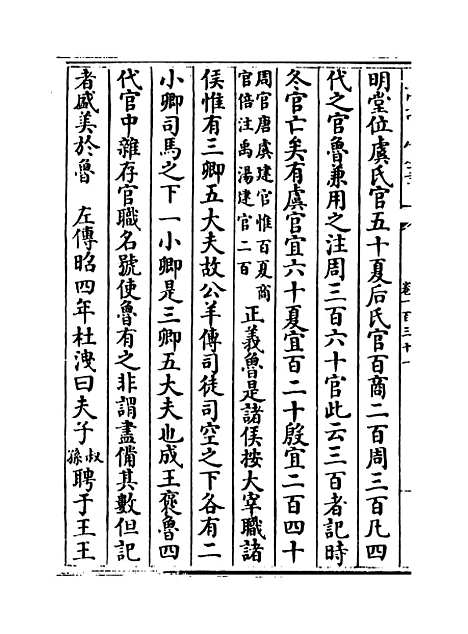 卷一百三十一
明堂位虞氏官五十夏后氏官百商二百周三百凡四
代之官魯兼用之注周三百六十官此云三百者記時
冬官亡矣有虞官宜六十夏宜百二十殷宜二百四十
周官唐虞建官惟百夏商
官倍注禹湯建官二百
正義魯是諸侯按大宰職諸
侯惟有三卿五大夫故公羊傳司徒司空之下各有二
小卿司馬之下一小卿是三卿五大夫也成王褒魯四
代官中雜存官職名號使魯有之非謂盡備其數但記
者盛美於魯　左傳昭四年杜洩曰夫子
叔
孫
聘于王王